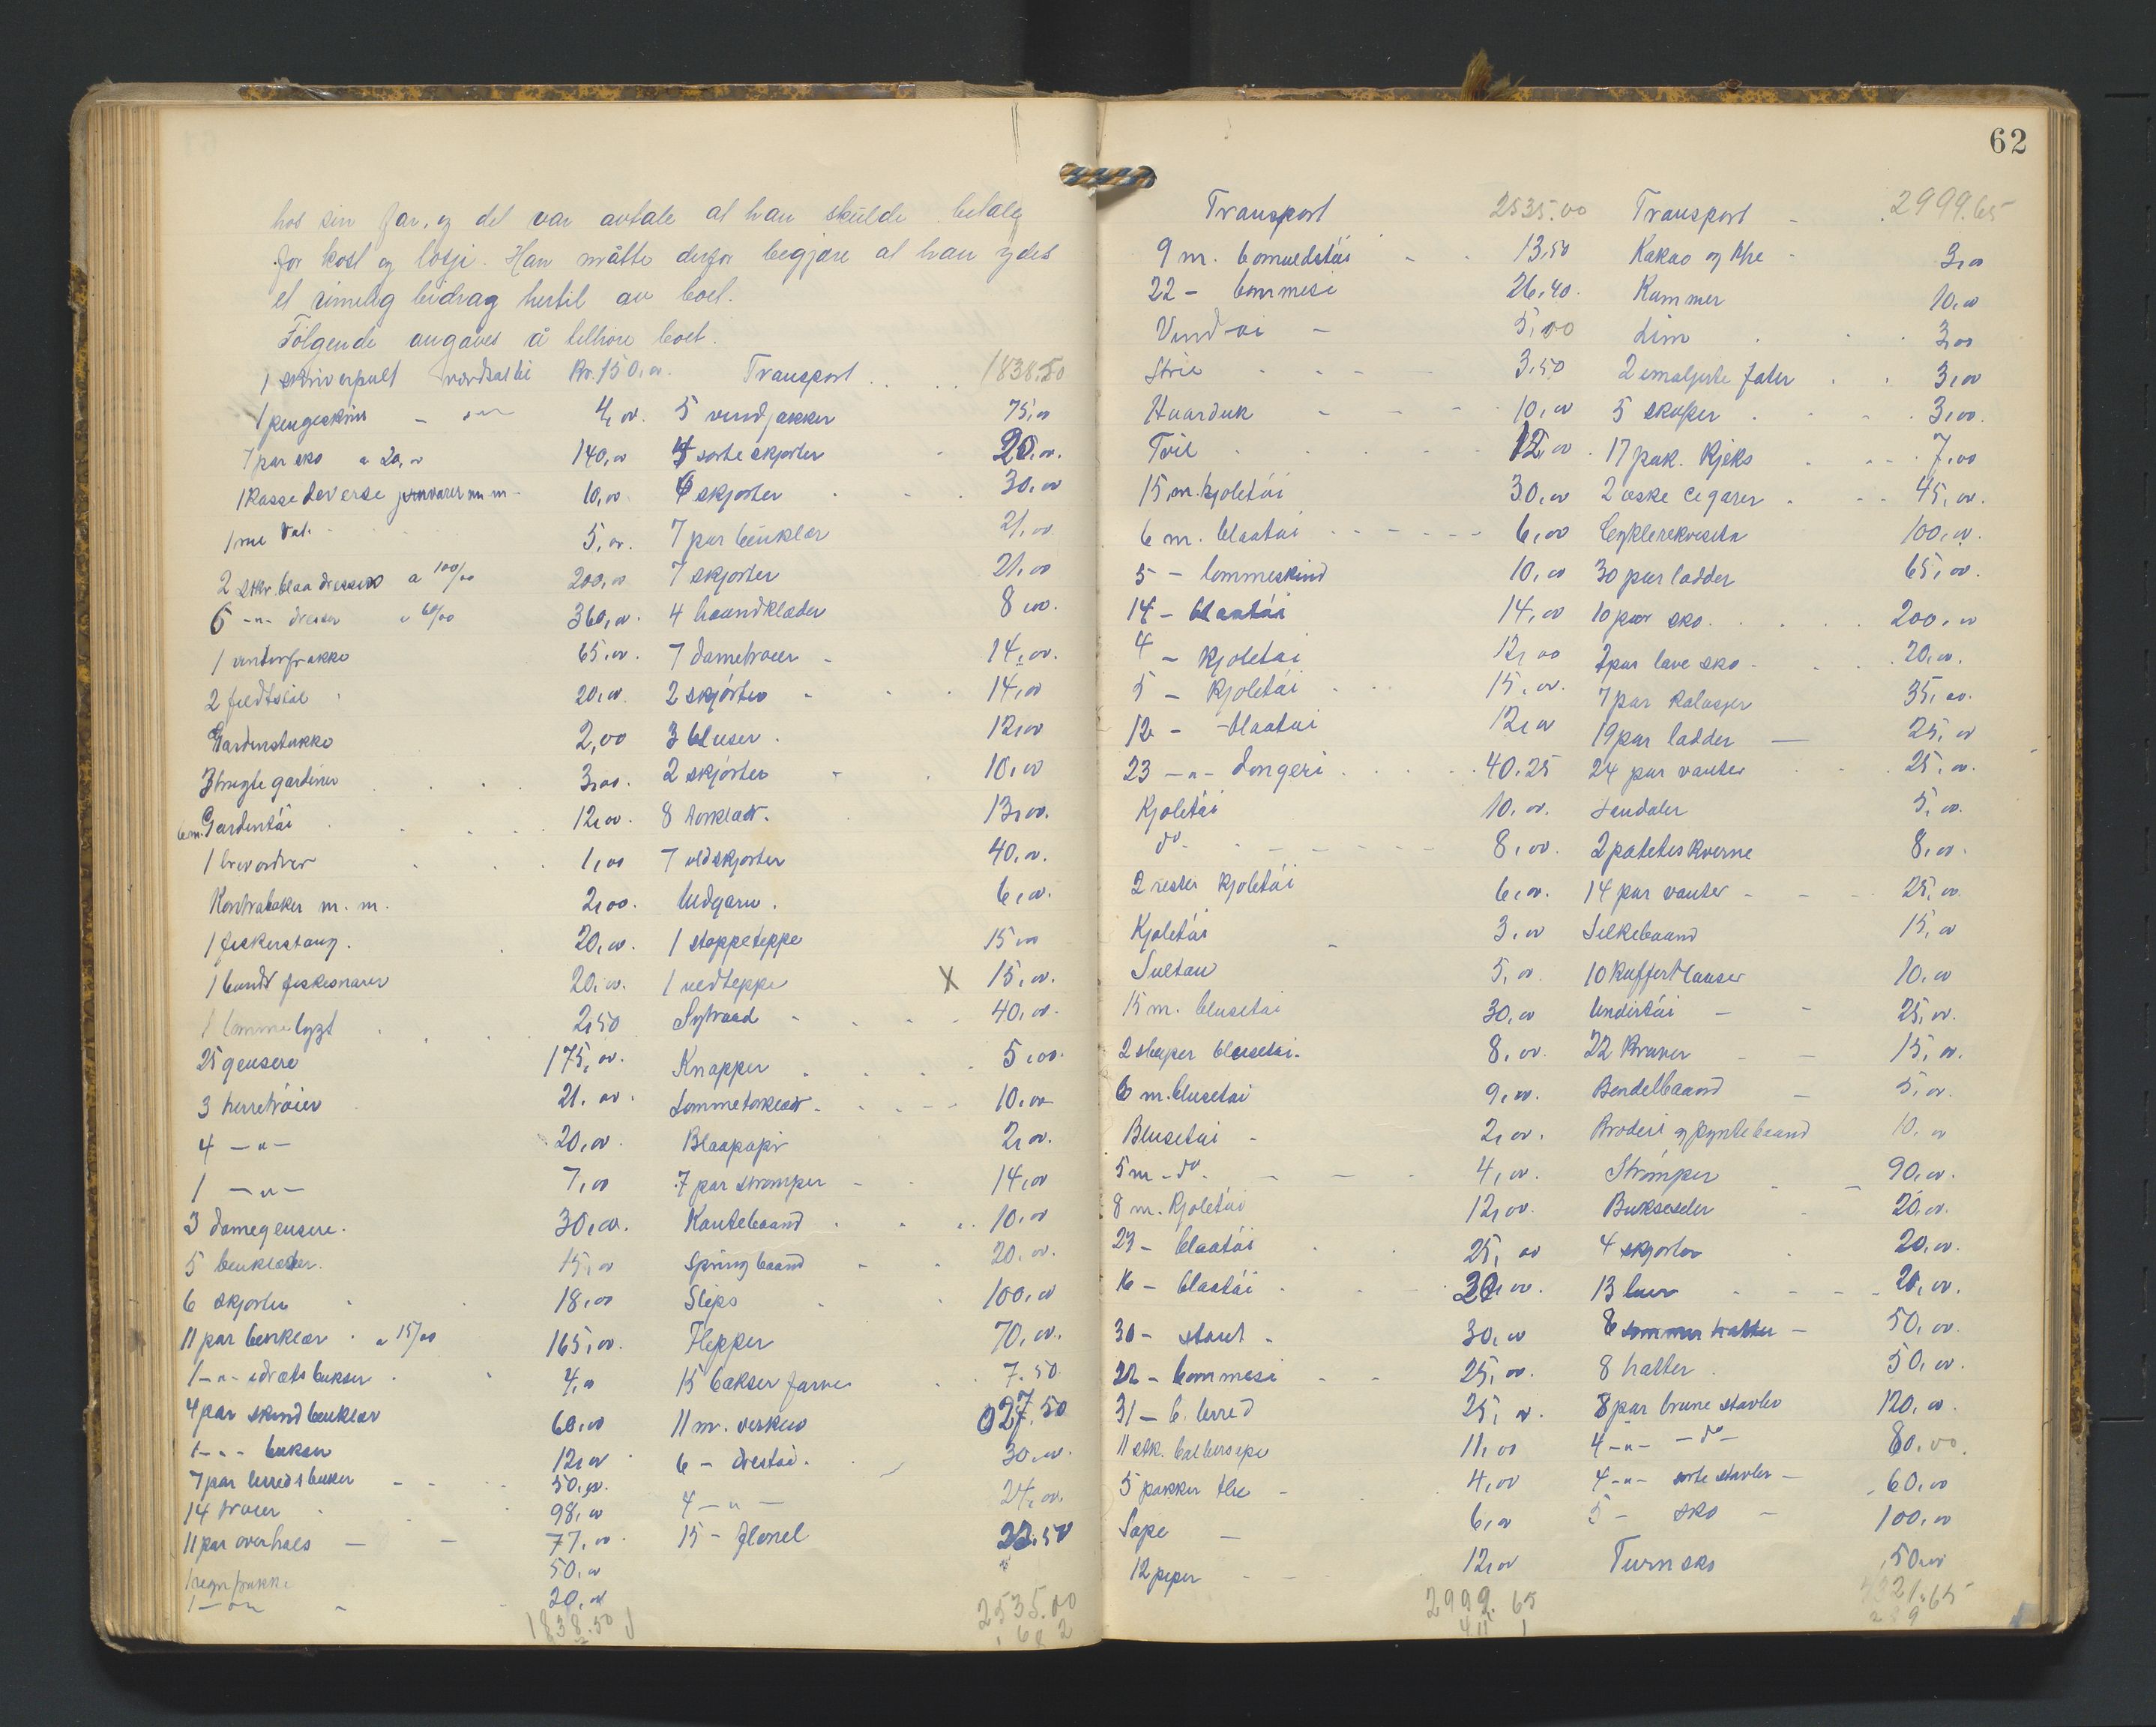 62
hos sin far, og det var avtale at han skulde betale
for kost og losji. Han måtte derfor begjære at han ydes
et rimelig bidrag hertil av boet.
Følgende angaves å tilhøre boet.
1 skriverpult værdsat til Kr. 150,00.
1 pengeskrin - " - 4,00.
7 par sko a 20,00 140,00
1 kasse deverse jernvarer m.m. 10,00
5,00.
2 stkr. blaa dresser a 100/00 200,00
6 -"- dresser a 60/00 360,00.
1 vinterfrakke 65,00.
2 feldtstøi 20,00.
Gardinstukke 2,00
3 brugte gardiner 3,00.
6 m. Gardintøi 12,00.
1 brevordner 1,00
Kontrabøker m. m. 2,00.
1 fiskerstang. 20,00.
1 bundt fiskesnører 20,00.
1 lommelygt 2,50
25 gensere 175,00.
3 herretrøier 21.00.
4 -"- 20,00.
1 -"- 7,00
3 damegensere. 30,00.
5 benklæder. 15,00
6 skjorter 18,00
11 par benklær a 15/00 165,00.
1 -"- idrætsbukser 4,00
4 par skindbenklær 60,00
1 -"- bukser 12,00
7 par lerredsbukser 50,00.
14 trøier 98,00
11 par overhals 77,00.
1 regnfrakke 50,00
1 -"- 20,00
1838.50
Transport 1838.50
5 vindjakker 75,00
4 sorte skjorter 20,00.
6 skjorter 30,00
7 par benklær 21,00.
7 skjorter 21,00
4 haandklæder 8,00.
7 dametrøier 14,00.
2 skjørter 14,00
3 bluser. 12,00
2 skjørter 10,00
8 forklær. 13,00.
7 uldskjorter 40,00.
Uldgarn. 6,00.
1 stoppeteppe 15,00
1 uldteppe X 15,00.
Sytraad 40,00.
Knapper 5,00.
Lommetørklær 10,00
Blaapapir 2,00.
7 par strømper 14,00
Kantebaand 10,00
Springbaand 20.00.
Slips 100,00
Flipper 70,00.
15 bakser farve 7.50
11 m. verken 27,50
6 - drestøi. 30,00.
4 -"- 24,00.
15 - flonel 22,50
2535.00
Transport 2535.00
9 m. bomuldstøi 13,50
22 - bommesi 26,40.
Vind-øi 5,00
Strie 3,50
Haarduk 10,00
Tvil 12,00
15 m. kjoletøi 30,00
6 m. blaatøi 6,00
5 - lommeskind 10,00
14 - blaatøi 14,00
4 - kjoletøi 12,00
5 - kjoletøi 15,00.
12 - blaatøi 12,00
23 -"- dongeri 40.25
Kjoletøi 10,00.
do. 8,00.
2 rester kjoletøi 6,00.
Kjoletøi 3,00
Sultan 5,00.
15 m. blusetøi 30,00
2 stuper blusetøi. 8,00.
6 m. blusetøi 9,00.
Blusetøi 2,00.
5 m - do. 4,00.
8 m. kjoletøi 12,00.
23 - blaatøi 25,00
16 - blaatøi 32,00.
30 - stout 30,00
22 - bommesi 25,00.
31 - b. lerred 25,00.
11 stk. barbersepe 11,00
5 pakker the 4,00
Sæpe 6,00
12 piper 12,00
2999.65
Transport 2999.65
Kakao og the 3,00
Kammer 10,00
Lim 3,00
2 emaljerte fater 3,00
5 skuffer 3,00.
17 pak. kjeks 7,00
2 æske cigarer 45,00.
Cyklerekvisita 100,00.
30 par ladder 65,00.
10 par sko 200,00
2 par lave sko 20,00.
7 par kalosjer 35,00.
19 par ladder 25,00
24 par vanter 25,00.
sandaler 5,00.
2 potetes kverne 8,00.
14 par vanter 25,00
Silkebaand 15,00
10 Kuffertlaaser 10,00
Undertøi 25,00.
22 kraver 15,00.
Bendelbaand 5,00.
Broderi og pyntebaand 10,00
Strømper 90,00.
Bukseseler 20,00.
4 skjorter 20,00.
13 luer 20,00.
6 sommerhatter 50,00.
8 hatter 50,00.
8 par brune støvler 120,00.
4 -"- -do- 80,00.
4 -"- sorte støvler 60,00
5 - sko 100,00
Turnsko 50,00
4321.65